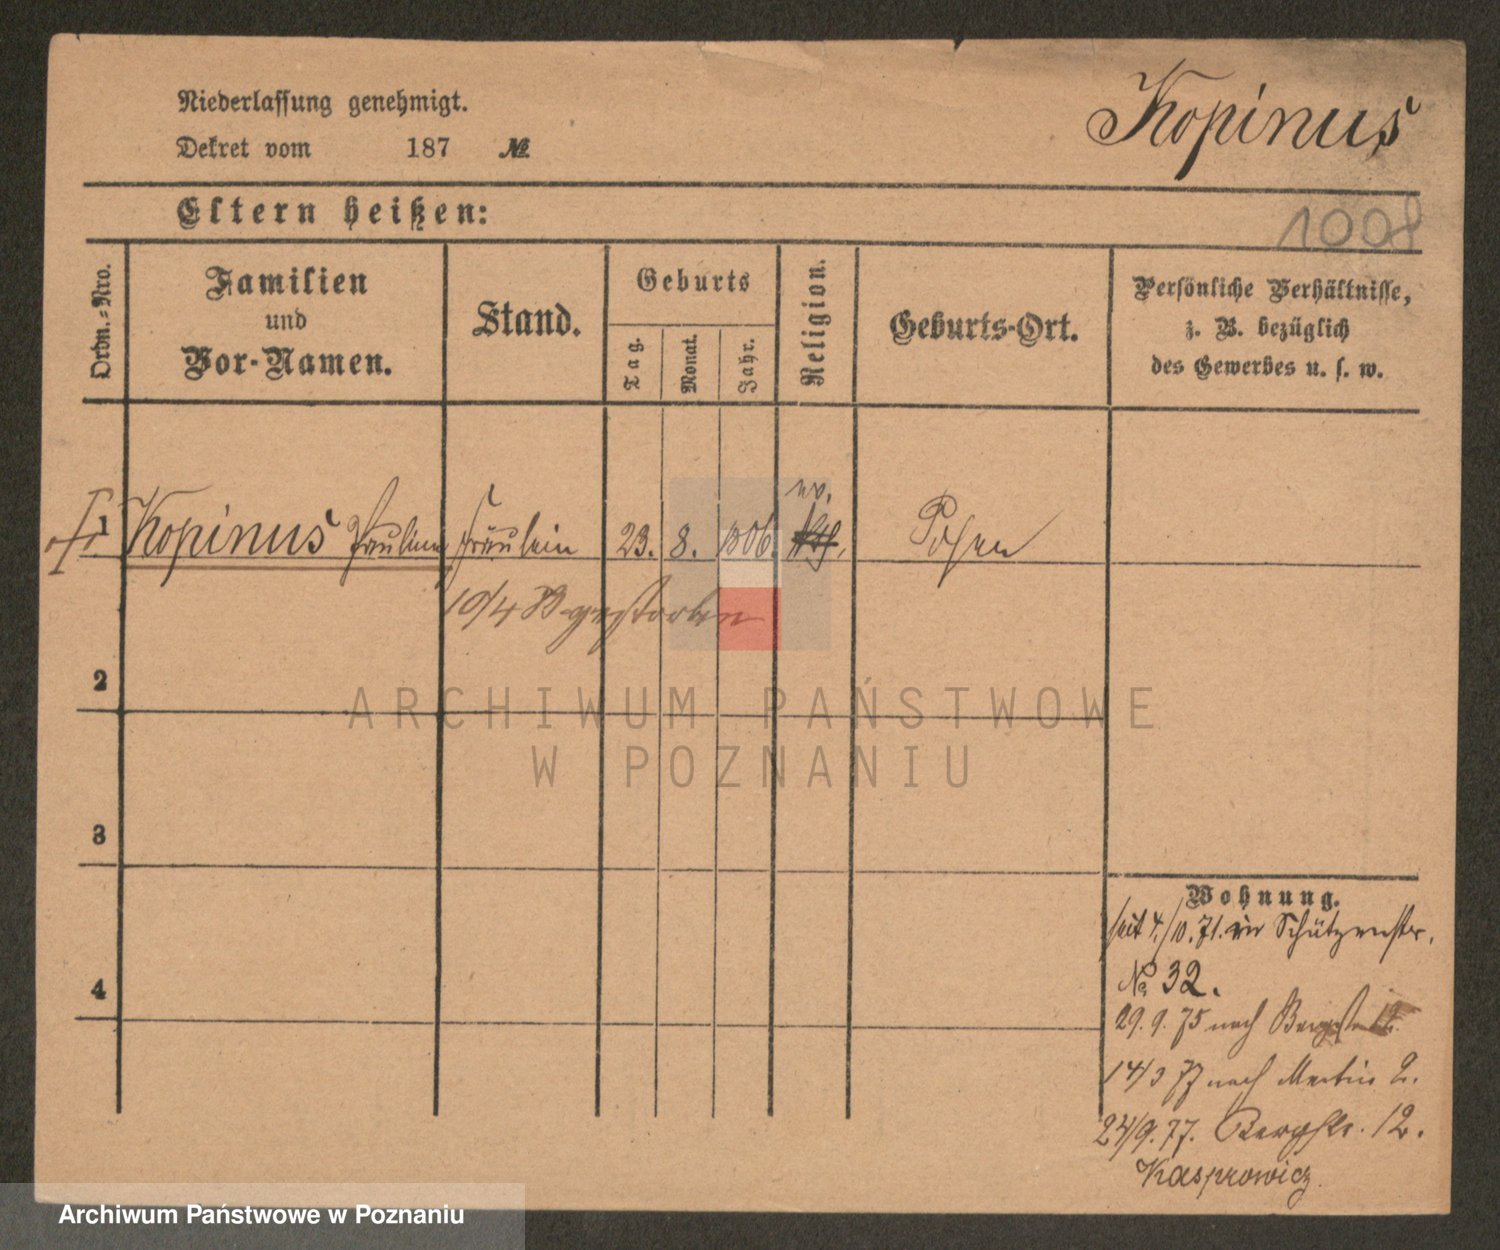 Niederlassung genehmigt.
Kopinus
Dekret vom 187 №
Eltern heißen:
1008
Ordn.-Nro.
Familien
und
Vor-Namen.
Stand.
Geburts
Tag.
Monat.
Jahr.
Religion.
Geburts-Ort.
Persönliche Verhältnisse,
z. B. bezüglich
des Gewerbes u. s. w.
ev.
1 Kopinus Pauline Fräulein 23. 8. 1806. Posen
10/4 gestorben
2
ARCHIWUM PAŃSTWOWE
W POZNANIU
3
Wohnung.
seit 4./10. 71. Schützenstr.
No 32.
4
29. 9. 75 nach Bergstr 12
14/3 77 nach Martin 2.
24/9. 77. Bergstr. 12.
Kasprowicz.
Archiwum Państwowe w Poznaniu